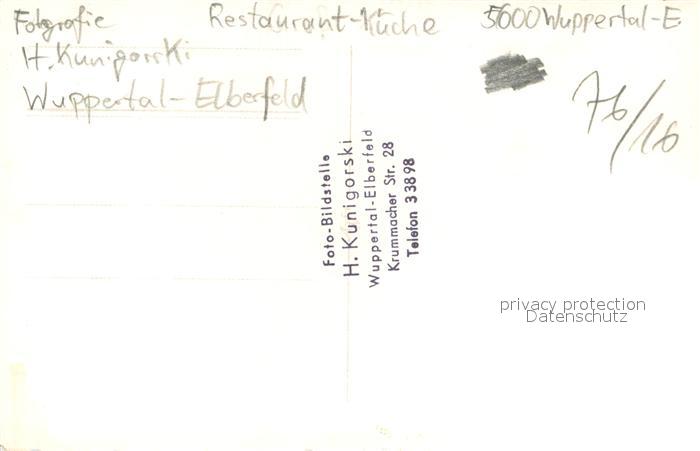 Fotografie
H. Kunigorski
Wuppertal-Elberfeld
Restaurant-Küche
5600 Wuppertal-E
76/16
Foto-Bildstelle
H. Kunigorski
Wuppertal-Elberfeld
Krummacher Str. 28
Telefon 3 38 98
privacy protection
Datenschutz